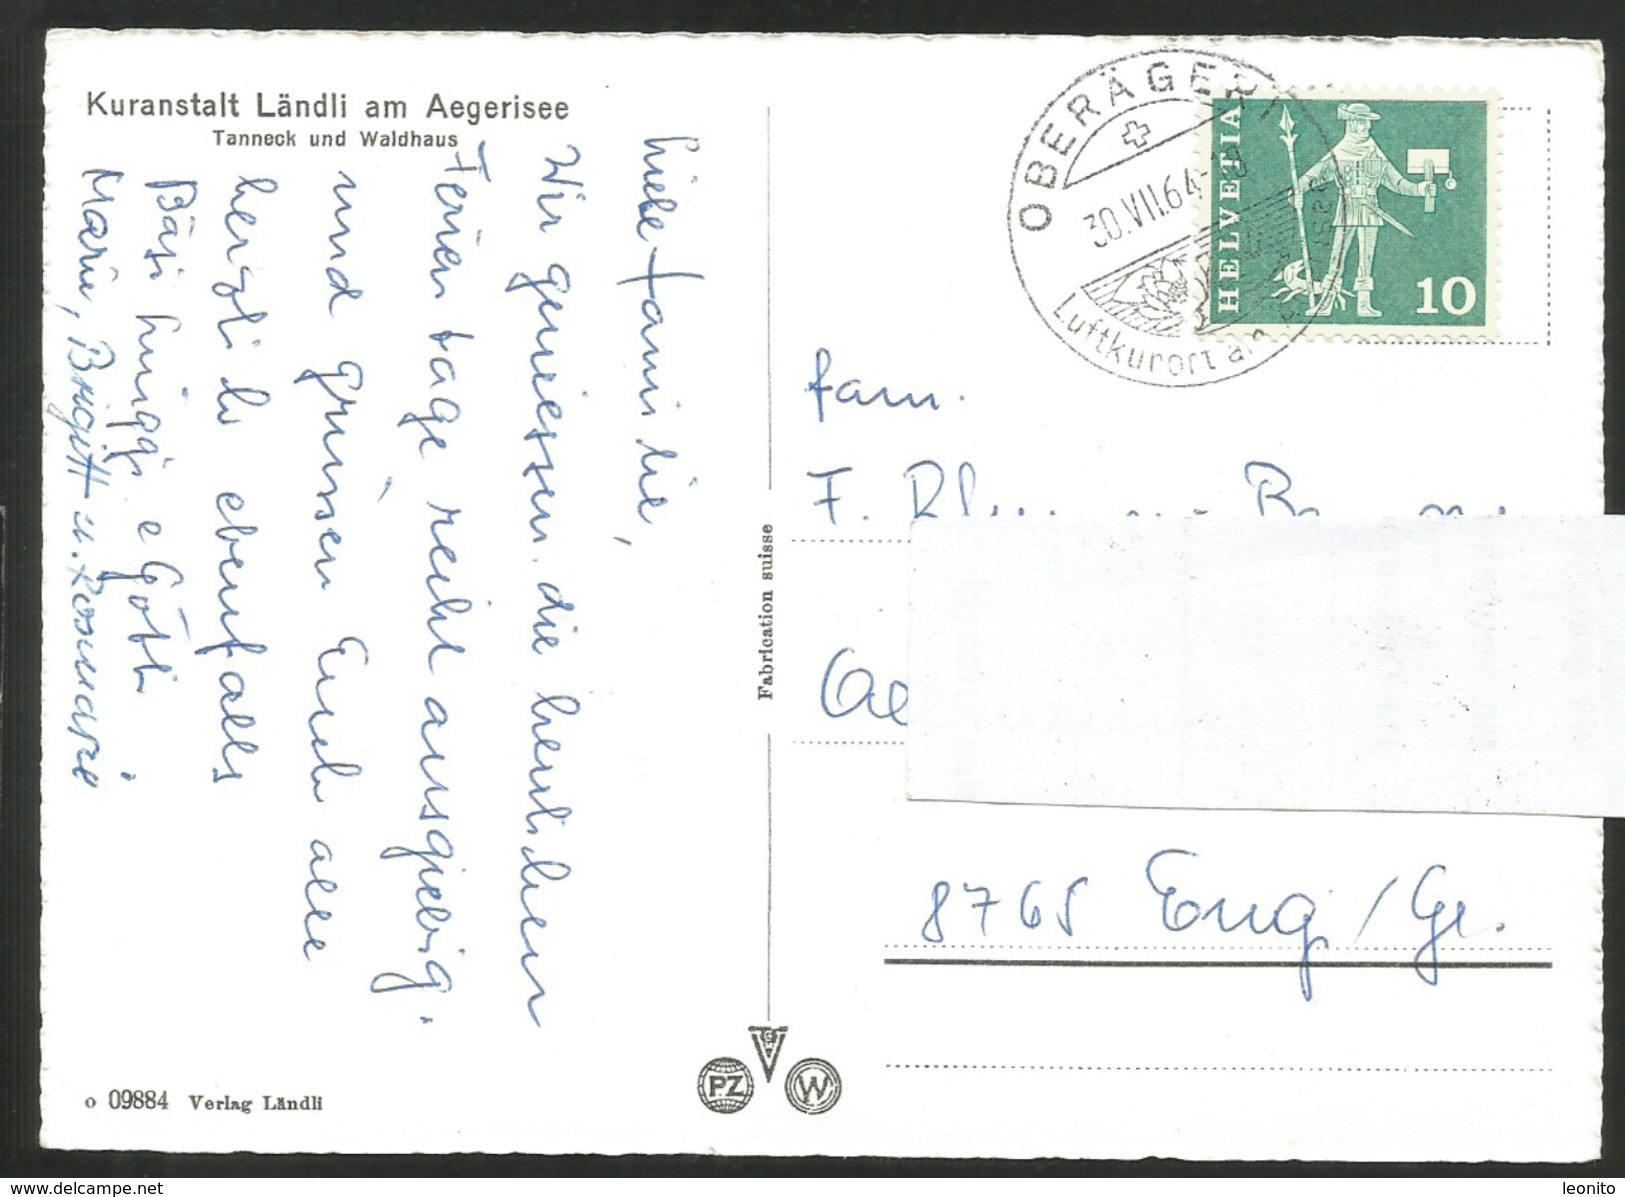 Kuranstalt Ländli am Aegerisee
Tanneck und Waldhaus
Liebe Familie,
Wir geniessen die herrlichen
Ferientage recht ausgiebig.
und grüssen Euch alle
herzli
ebenfalls
Bäsi Hüggi e Götti.
Marie, Brigitt u. Rosmarie
o 09884 Verlag Ländli
Fabrication suisse
PZ
W
OBERÄGERI
30.VII.64-18
Luftkurort am
HELVETIA
10
Fam.
F.
8765 Engi/Gl.
delcampe.net
leonito